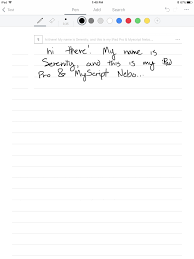 1:46 PM
Pen Add Search
1
hi there! My name is
Serenity, and this is my iPad
Pro & MyScript Nebo...